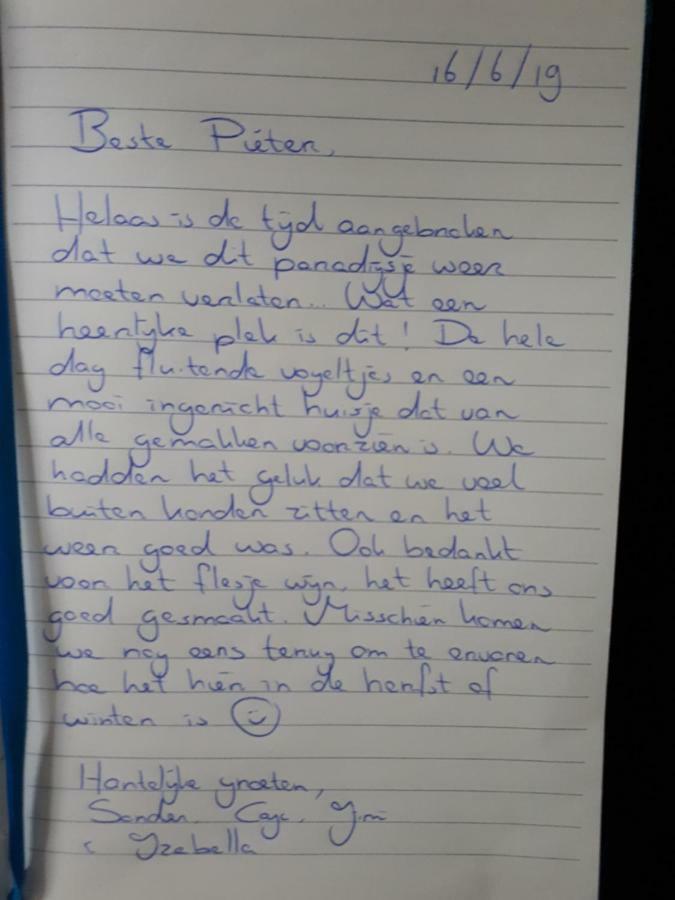 16/6/19
Beste Pieter,
Helaas is de tijd aangebroken
dat we dit paradijsje weer
moeten verlaten... Wat een
heerlijke plek is dit! De hele
dag fluitende vogeltjes en een
mooi ingericht huisje dat van
alle gemakken voorzien is. We
hadden het geluk dat we veel
buiten konden zitten en het
weer goed was. Ook bedankt
voor het flesje wijn, het heeft ons
goed gesmaakt. Misschien komen
we nog eens terug om te ervaren
hoe het hier in de herfst of
winter is
Hartelijke groeten,
Sander,
Yzebella